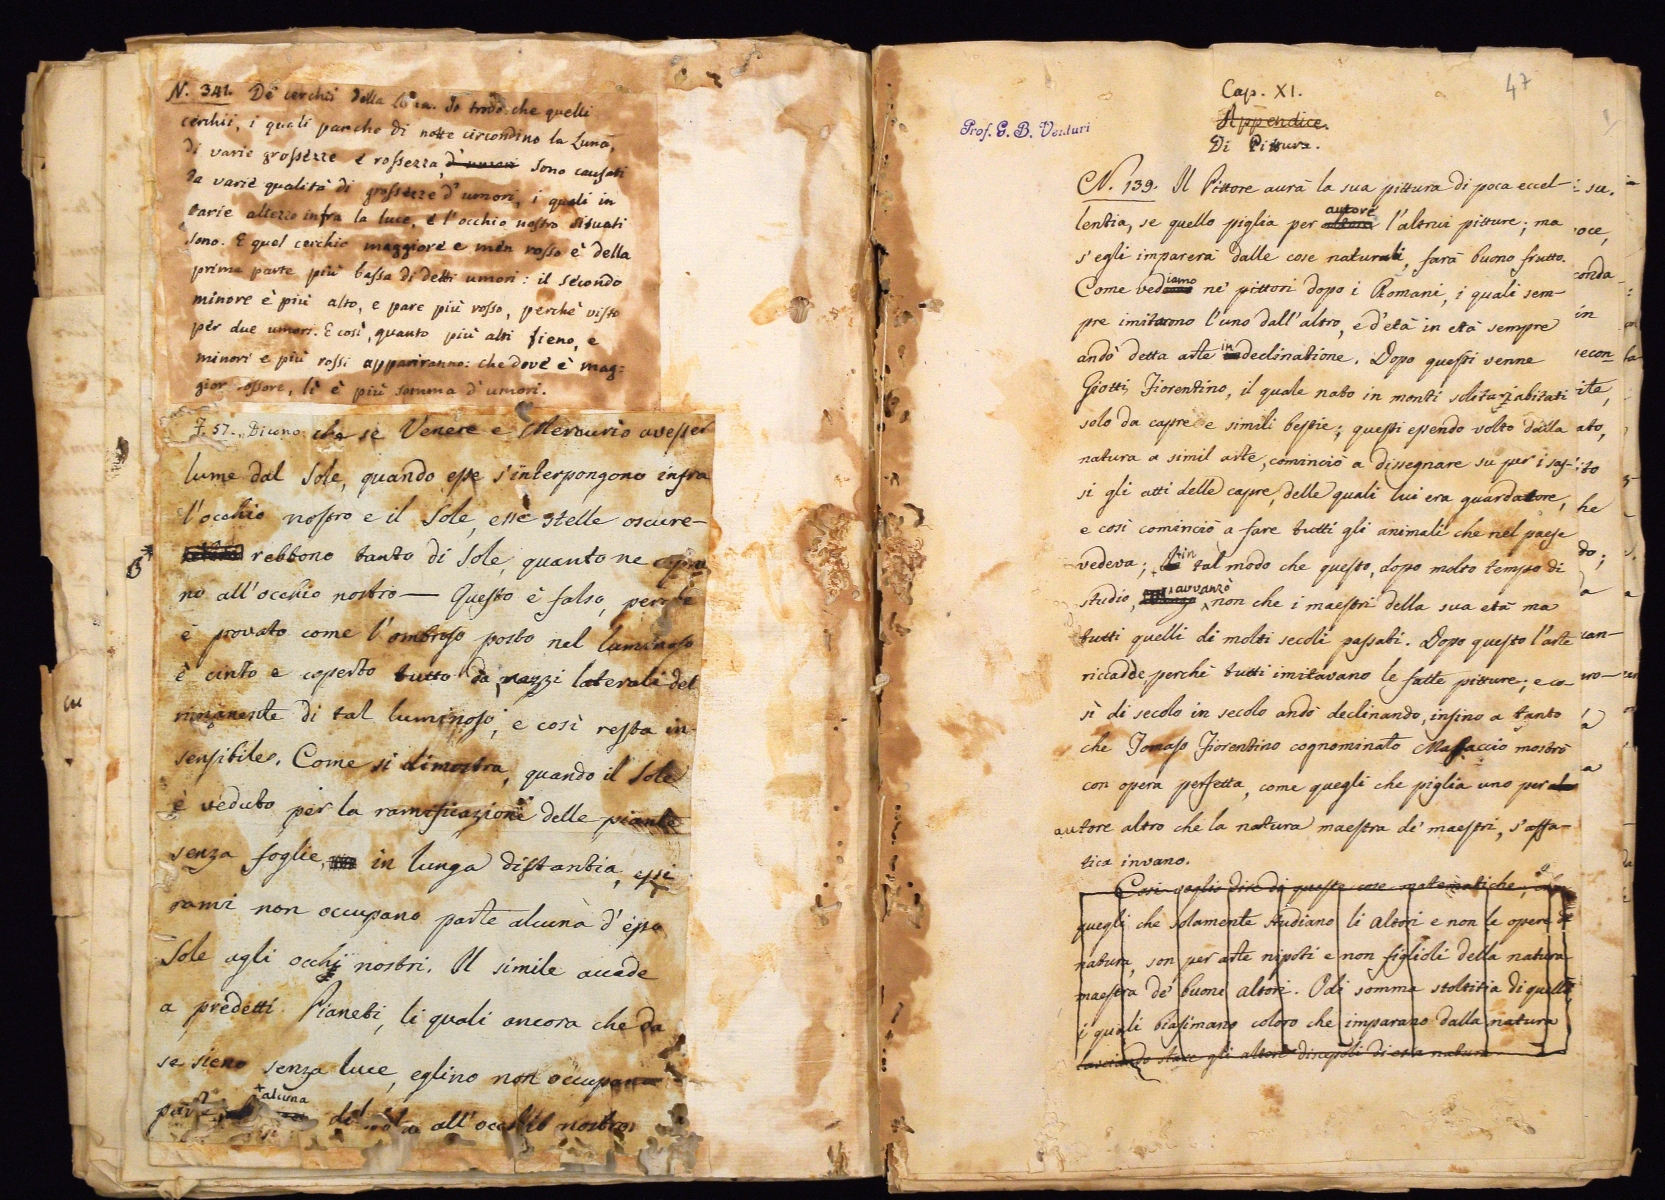 N. 341. De' cerchii della Luna. Io trovo che quelli
cerchii, i quali par che di notte circondino la Luna,
di varie grossezze e rossezza, sono causati
da varie qualità di grossezze d'umori, i quali in
varie altezze infra la luce, e l'occhio nostro situati
sono. E quel cerchio maggiore e men rosso è della
prima parte più bassa di detti umori: il secondo
minore è più alto, e pare più rosso, perchè visto
per due umori. E così, quanto più alti fieno, e
minori e più rossi appariranno: che dove è mag=
gior rossore, lì è più somma d'umori.
F. 57. Dicono che se Venere e Mercurio avesser
lume dal Sole, quando esse s'interpongono infra
l'occhio nostro e il Sole, esse stelle oscure-
rebbono tanto di Sole, quanto ne copro
no all'occhio nostro — Questo è falso, perchè
è provato come l'ombroso posto nel luminoso
è cinto e coperto tutto da razzi laterali del
rimanente di tal luminoso, e così resta in
sensibile. Come si dimostra, quando il Sole
è veduto per la ramificazione delle piante
senza foglie, in lunga distantia, essi
rami non occupano parte alcuna d'esso
Sole agli occhi nostri. Il simile accade
a predetti Pianeti, li quali ancora che da
se sieno senza luce, eglino non occupano
parte alcuna del Sole all'occhio nostro.
47
Cap. XI.
Appendice.
Di Pittura.
Prof. G. B. Venturi
N. 139. Il Pittore aurà la sua pittura di poca eccel-
lentia, se quello piglia per autore l'altrui pitture; ma
s'egli imparerà dalle cose naturali, farà buono frutto.
Come vediamo ne' pittori dopo i Romani, i quali sem-
pre imitarono l'uno dall'altro, e d'età in età sempre
andò detta arte in declinatione. Dopo questi venne
Giotti, Fiorentino, il quale nato in monti soliturj abitati
solo da capre e simili bestie; questi essendo volto dalla
natura a simil arte, cominciò a dissegnare su per i sas-
si gli atti delle capre, delle quali lui era guardatore,
e così cominciò a fare tutti gli animali che nel paese
vedeva; in tal modo che questo, dopo molto tempo di
studio, avvanzò non che i maestri della sua età ma
tutti quelli di molti secoli passati. Dopo questo l'arte
riccadde, perchè tutti imitavano le fatte pitture; e co-
sì di secolo in secolo andò declinando, insino a tanto
che Tomaso Fiorentino cognominato Masaccio mostrò
con opera perfetta, come quegli che piglia uno per
autore altro che la natura maestra de' maestri, s'affa-
tica invano.
Così voglio dire di queste cose matematiche, che
quegli che solamente studiano li altori e non le opere di
natura, son per arte nipoti e non figlioli della natura
maestra de' buoni altori. Odi somma stoltitia di quelli
i quali biasimano coloro che imparano dalla natura
lasciando stare gli altori discepoli di essa natura